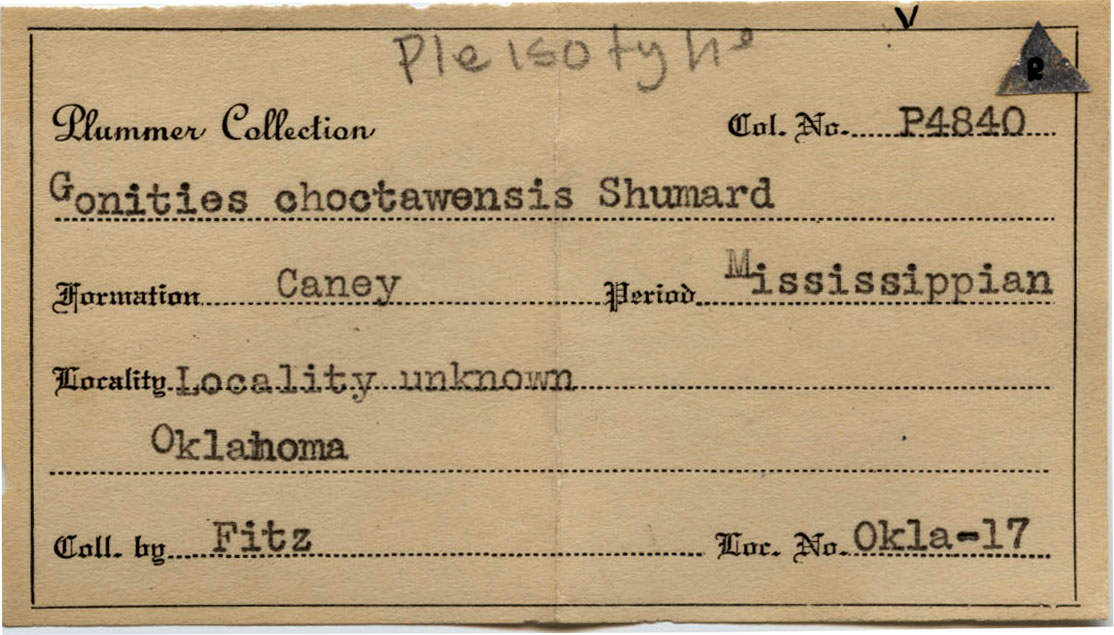 v
Pleisotype
R
Plummer Collection Col. No. P4840
Gonities choctawensis Shumard
Formation Caney Period Mississippian
Locality Locality unknown
Oklahoma
Coll. by Fitz Loc. No. Okla-17